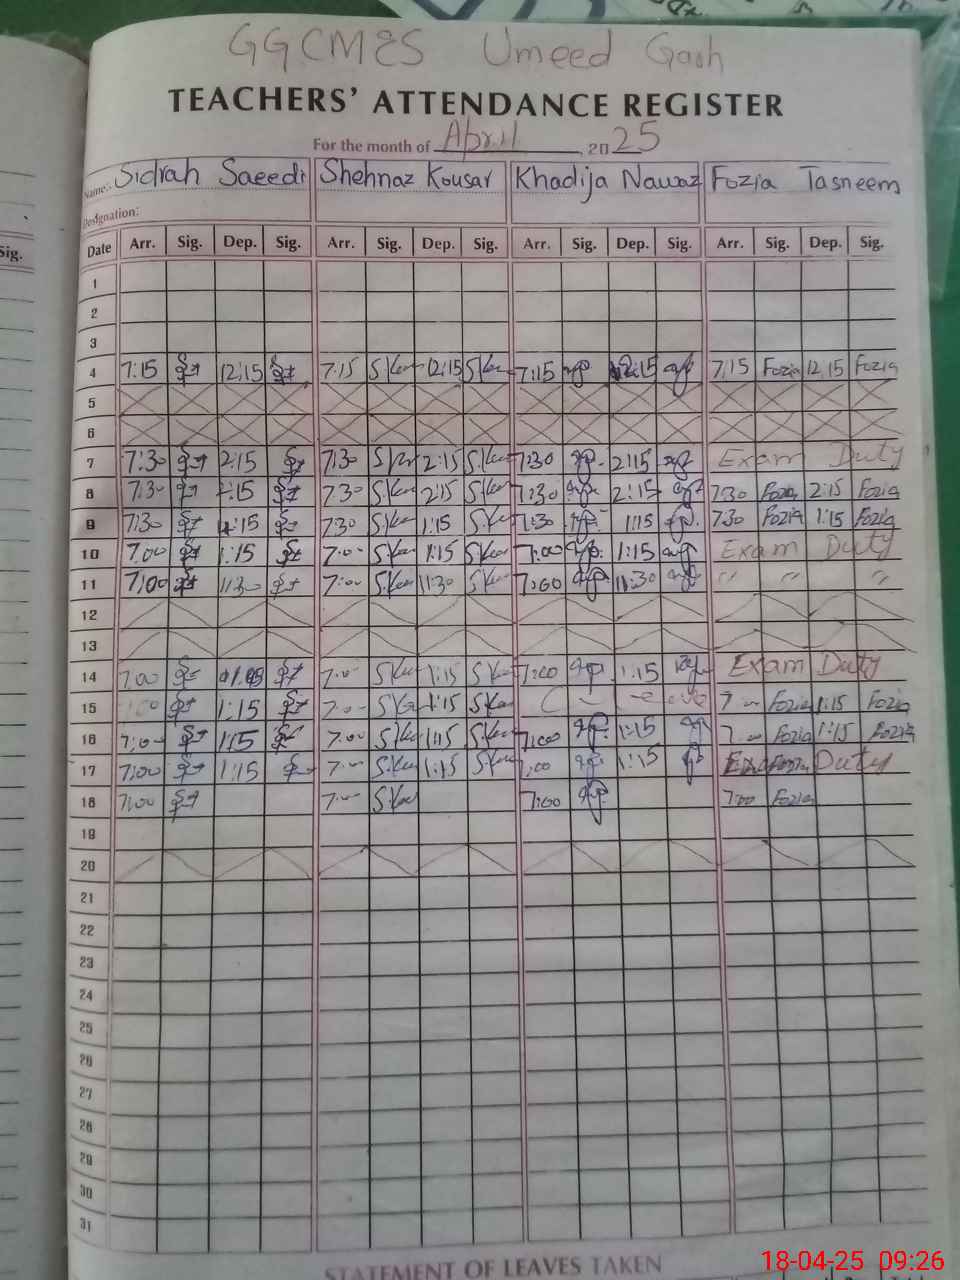 GGCMES Umeed Gash
TEACHERS' ATTENDANCE REGISTER
For the month of April, 2025
Name: Sidrah Saeedi Shehnaz Kousar Khadija Nawaz Fozia Tasneem
Designation:
Sig.
Date Arr. Sig. Dep. Sig. Arr. Sig. Dep. Sig. Arr. Sig. Dep. Sig. Arr. Sig. Dep. Sig.
1
2
3
4 7:15 12:15 7:15 S.Kou 12:15 S.Kou 7:15 12:15 7:15 Fozia 12:15 Fozia
5
6
7 7:30 2:15 7:30 S.Kou 2:15 S.Kou 7:30 2:15 Exam Duty
8 7:30 :15 7:30 S.Kou 2:15 S.Kou 7:30 2:15 7:30 Fozia 2:15 Fozia
9 7:30 1:15 7:30 S.Kou 1:15 S.Kou 7:30 1:15 7:30 Fozia 1:15 Fozia
10 7:00 1:15 7:00 S.Kou 1:15 S.Kou 7:00 1:15 Exam Duty
11 7:00 11:30 7:00 S.Kou 11:30 S.Kou 7:00 11:30 " " "
12
13
14 7:00 7:00 S.Kou 1:15 S.Kou 7:00 1:15 Exam Duty
15 1:15 7:00 S.Kou 1:15 S.Kou C-leave 7:00 Fozia 1:15 Fozia
16 7:00 1:15 7:00 S.Kou 1:15 S.Kou 7:00 1:15 7:00 Fozia 1:15 Fozia
17 7:00 1:15 7:00 S.Kou 1:15 S.Kou 7:00 1:15 Exam Duty
18 7:00 7:00 S.Kou 7:00 7:00 Fozia
19
20
21
22
23
24
25
26
27
28
29
30
31
STATEMENT OF LEAVES TAKEN
18-04-25 09:26